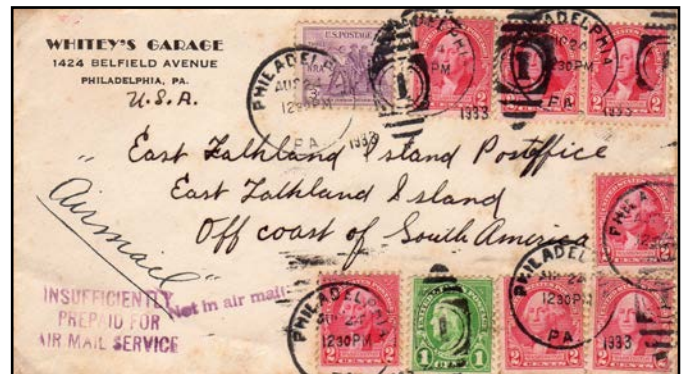 WHITEY'S GARAGE
1424 BELFIELD AVENUE
PHILADELPHIA, PA.
U.S.A.
U.S. POSTAGE
NRA
3¢
PHILADELPHIA
AUG 24
12 30 PM
PA
1933
1
1
1933
AUG 24
12 30 PM
PA
1933
2 2
2 2
" East Falkland Island Postoffice
East Falkland Island
Off coast of South America
Airmail "
INSUFFICIENTLY
PREPAID FOR
AIR MAIL SERVICE
Not in air mail
PHILADELPHIA
AUG 24
12 30 PM
2 CENTS 2
1 1
PHILADELPHIA
AUG 24
12 30 PM
PA
1933
2 CENTS 2
2 CENTS 2